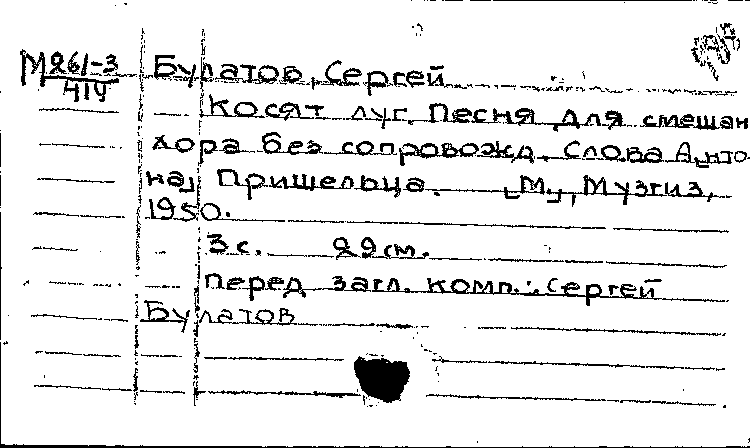 М 261-3
41У
Булатов, Сергей
Косят луг. Песня для смешан
хора без сопровожд. Слова А[нто-
на] Пришельца. [М.], Музгиз,
1950.
3 с. 29 см.
Перед загл. комп.: Сергей
Булатов